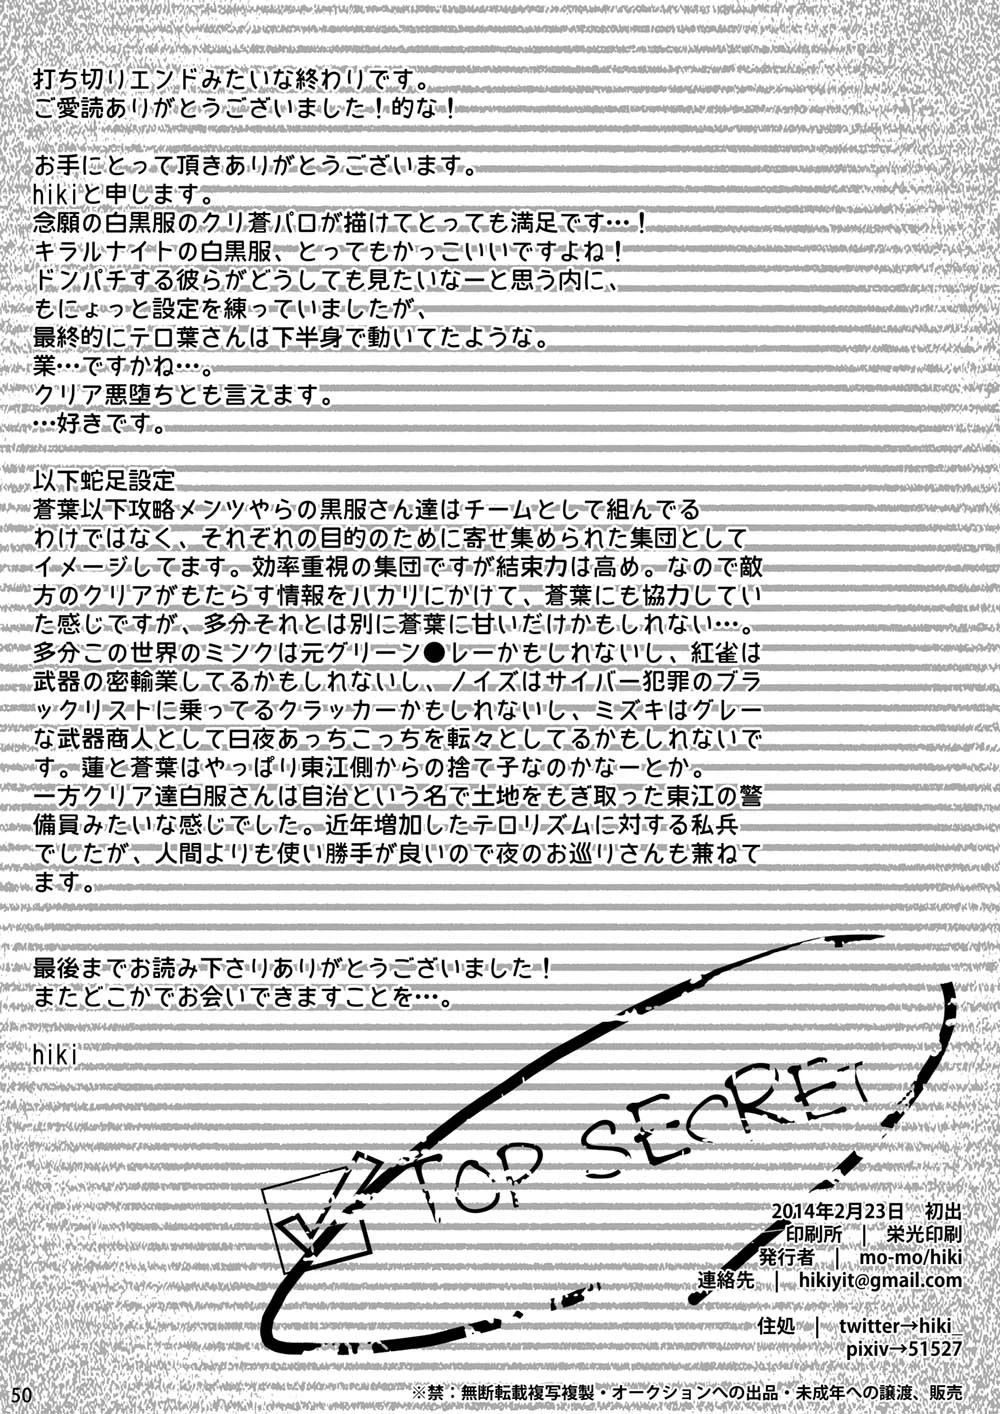 打ち切りエンドみたいな終わりです。
ご愛読ありがとうございました！的な！
お手にとって頂きありがとうございます。
hikiと申します。
念願の白黒服のクリ蒼パロが描けてとっても満足です…！
キラルナイトの白黒服、とってもかっこいいですよね！
ドンパチする彼らがどうしても見たいなーと思う内に、
もにょっと設定を練っていましたが、
最終的にテロ葉さんは下半身で動いてたような。
業…ですかね…。
クリア悪堕ちとも言えます。
…好きです。
以下蛇足設定
蒼葉以下攻略メンツやらの黒服さん達はチームとして組んでる
わけではなく、それぞれの目的のために寄せ集められた集団として
イメージしてます。効率重視の集団ですが結束力は高め。なので敵
方のクリアがもたらす情報をハカリにかけて、蒼葉にも協力してい
た感じですが、多分それとは別に蒼葉に甘いだけかもしれない…。
多分この世界のミンクは元グリーン●レーかもしれないし、紅雀は
武器の密輸業してるかもしれないし、ノイズはサイバー犯罪のブラ
ックリストに乗ってるクラッカーかもしれないし、ミズキはグレー
な武器商人として日夜あっちこっちを転々としてるかもしれないで
す。蓮と蒼葉はやっぱり東江側からの捨て子なのかなーとか。
一方クリア達白服さんは自治という名で土地をもぎ取った東江の警
備員みたいな感じでした。近年増加したテロリズムに対する私兵
でしたが、人間よりも使い勝手が良いので夜のお巡りさんも兼ねて
ます。
最後までお読み下さりありがとうございました！
またどこかでお会いできますことを…。
hiki
TOP SECRET
2014年2月23日　初出
印刷所　|　栄光印刷
発行者　|　mo-mo/hiki
連絡先　|　hikiyit@gmail.com
住処　|　twitter→hiki_
pixiv→51527
50
※禁：無断転載複写複製・オークションへの出品・未成年への譲渡、販売